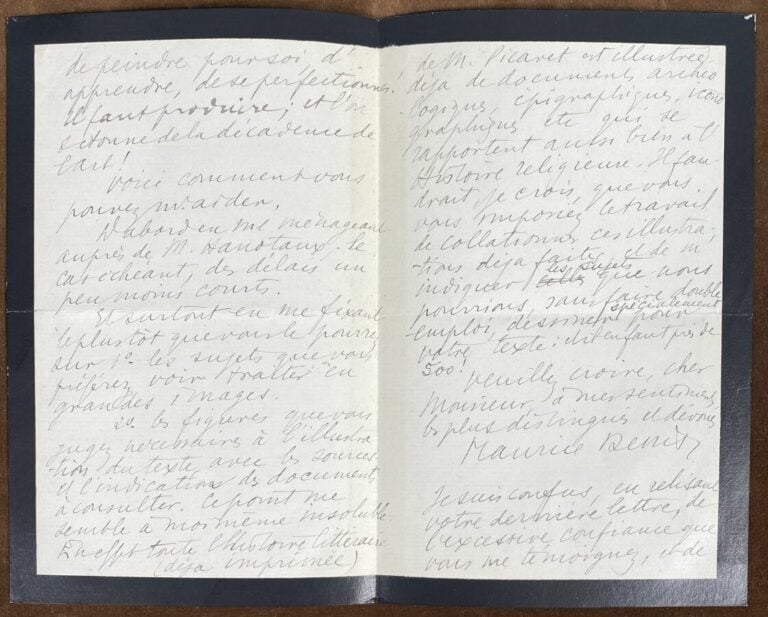 de peindre pour soi, d'
apprendre, de se perfectionner!
il faut produire; et l'on
s'étonne de la décadence de
l'art!
Voici comment vous
pouvez m'aider.
D'abord en me ménageant
auprès de M. Hanotaux, le
cas échéant, des délais un
peu moins courts.
Et surtout en me fixant
le plus tôt que vous le pourrez
sur 1º les sujets que vous
préférez voir traiter en
grandes images.
2º les figures que vous
jugez nécessaires à l'illustra
tion du texte avec les sources
et l'indication des documents
à consulter. Ce point me
semble à moi-même insoluble.
En effet toute l'histoire littéraire
(déjà imprimée)
de M. Picavet est illustrée
déjà de documents archéo
logiques, épigraphiques, icono
graphiques etc qui se
rapportent aussi bien à l'
Histoire religieuse. Il fau-
drait, je crois, que vous
vous imposiez le travail
de collationner ces illustra-
-tions déjà faites, et de m'
indiquer celles les sujets que nous
pourrions, sans faire double
emploi, dessiner spécialement pour
votre texte: il en faut près de
500.
Veuillez croire, cher
Monsieur, à mes sentiments
les plus distingués et dévoués
Maurice
Je suis confus, en relisant
votre dernière lettre, de
l'excessive confiance que
vous me témoignez, et de